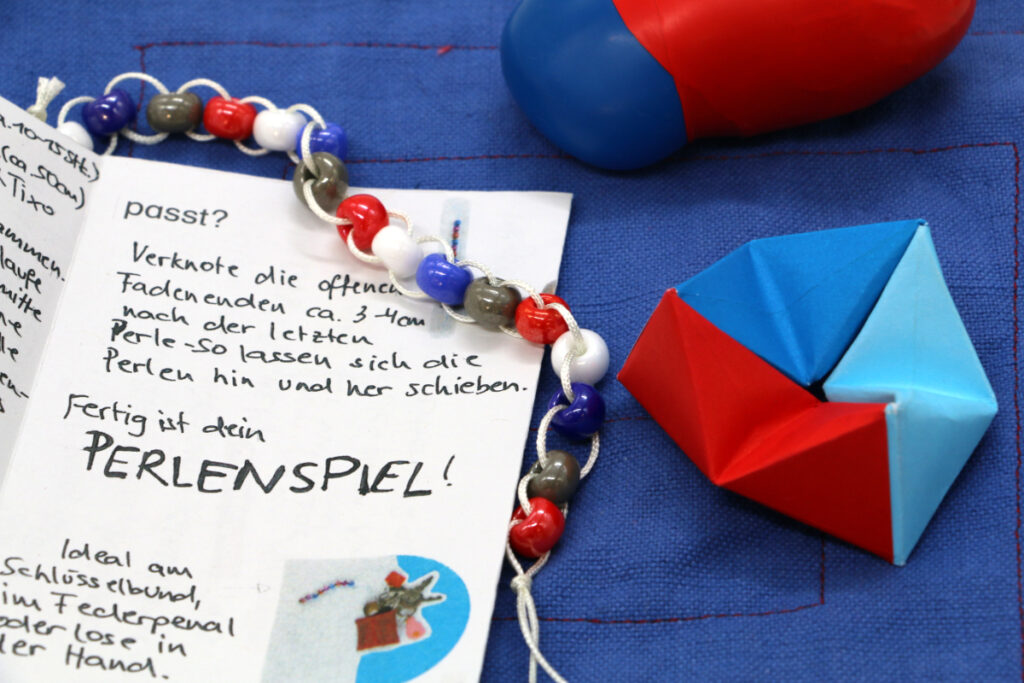 10-15 Stk.)
(ca. 50cm)
Tixo
passt?
Verknote die offenen
Fadenenden ca. 3-4cm
nach der letzten
Perle - So lassen sich die
Perlen hin und her schieben.
Fertig ist dein
PERLENSPIEL!
Ideal am
Schlüsselbund,
im Federpenal
oder lose in
der Hand.